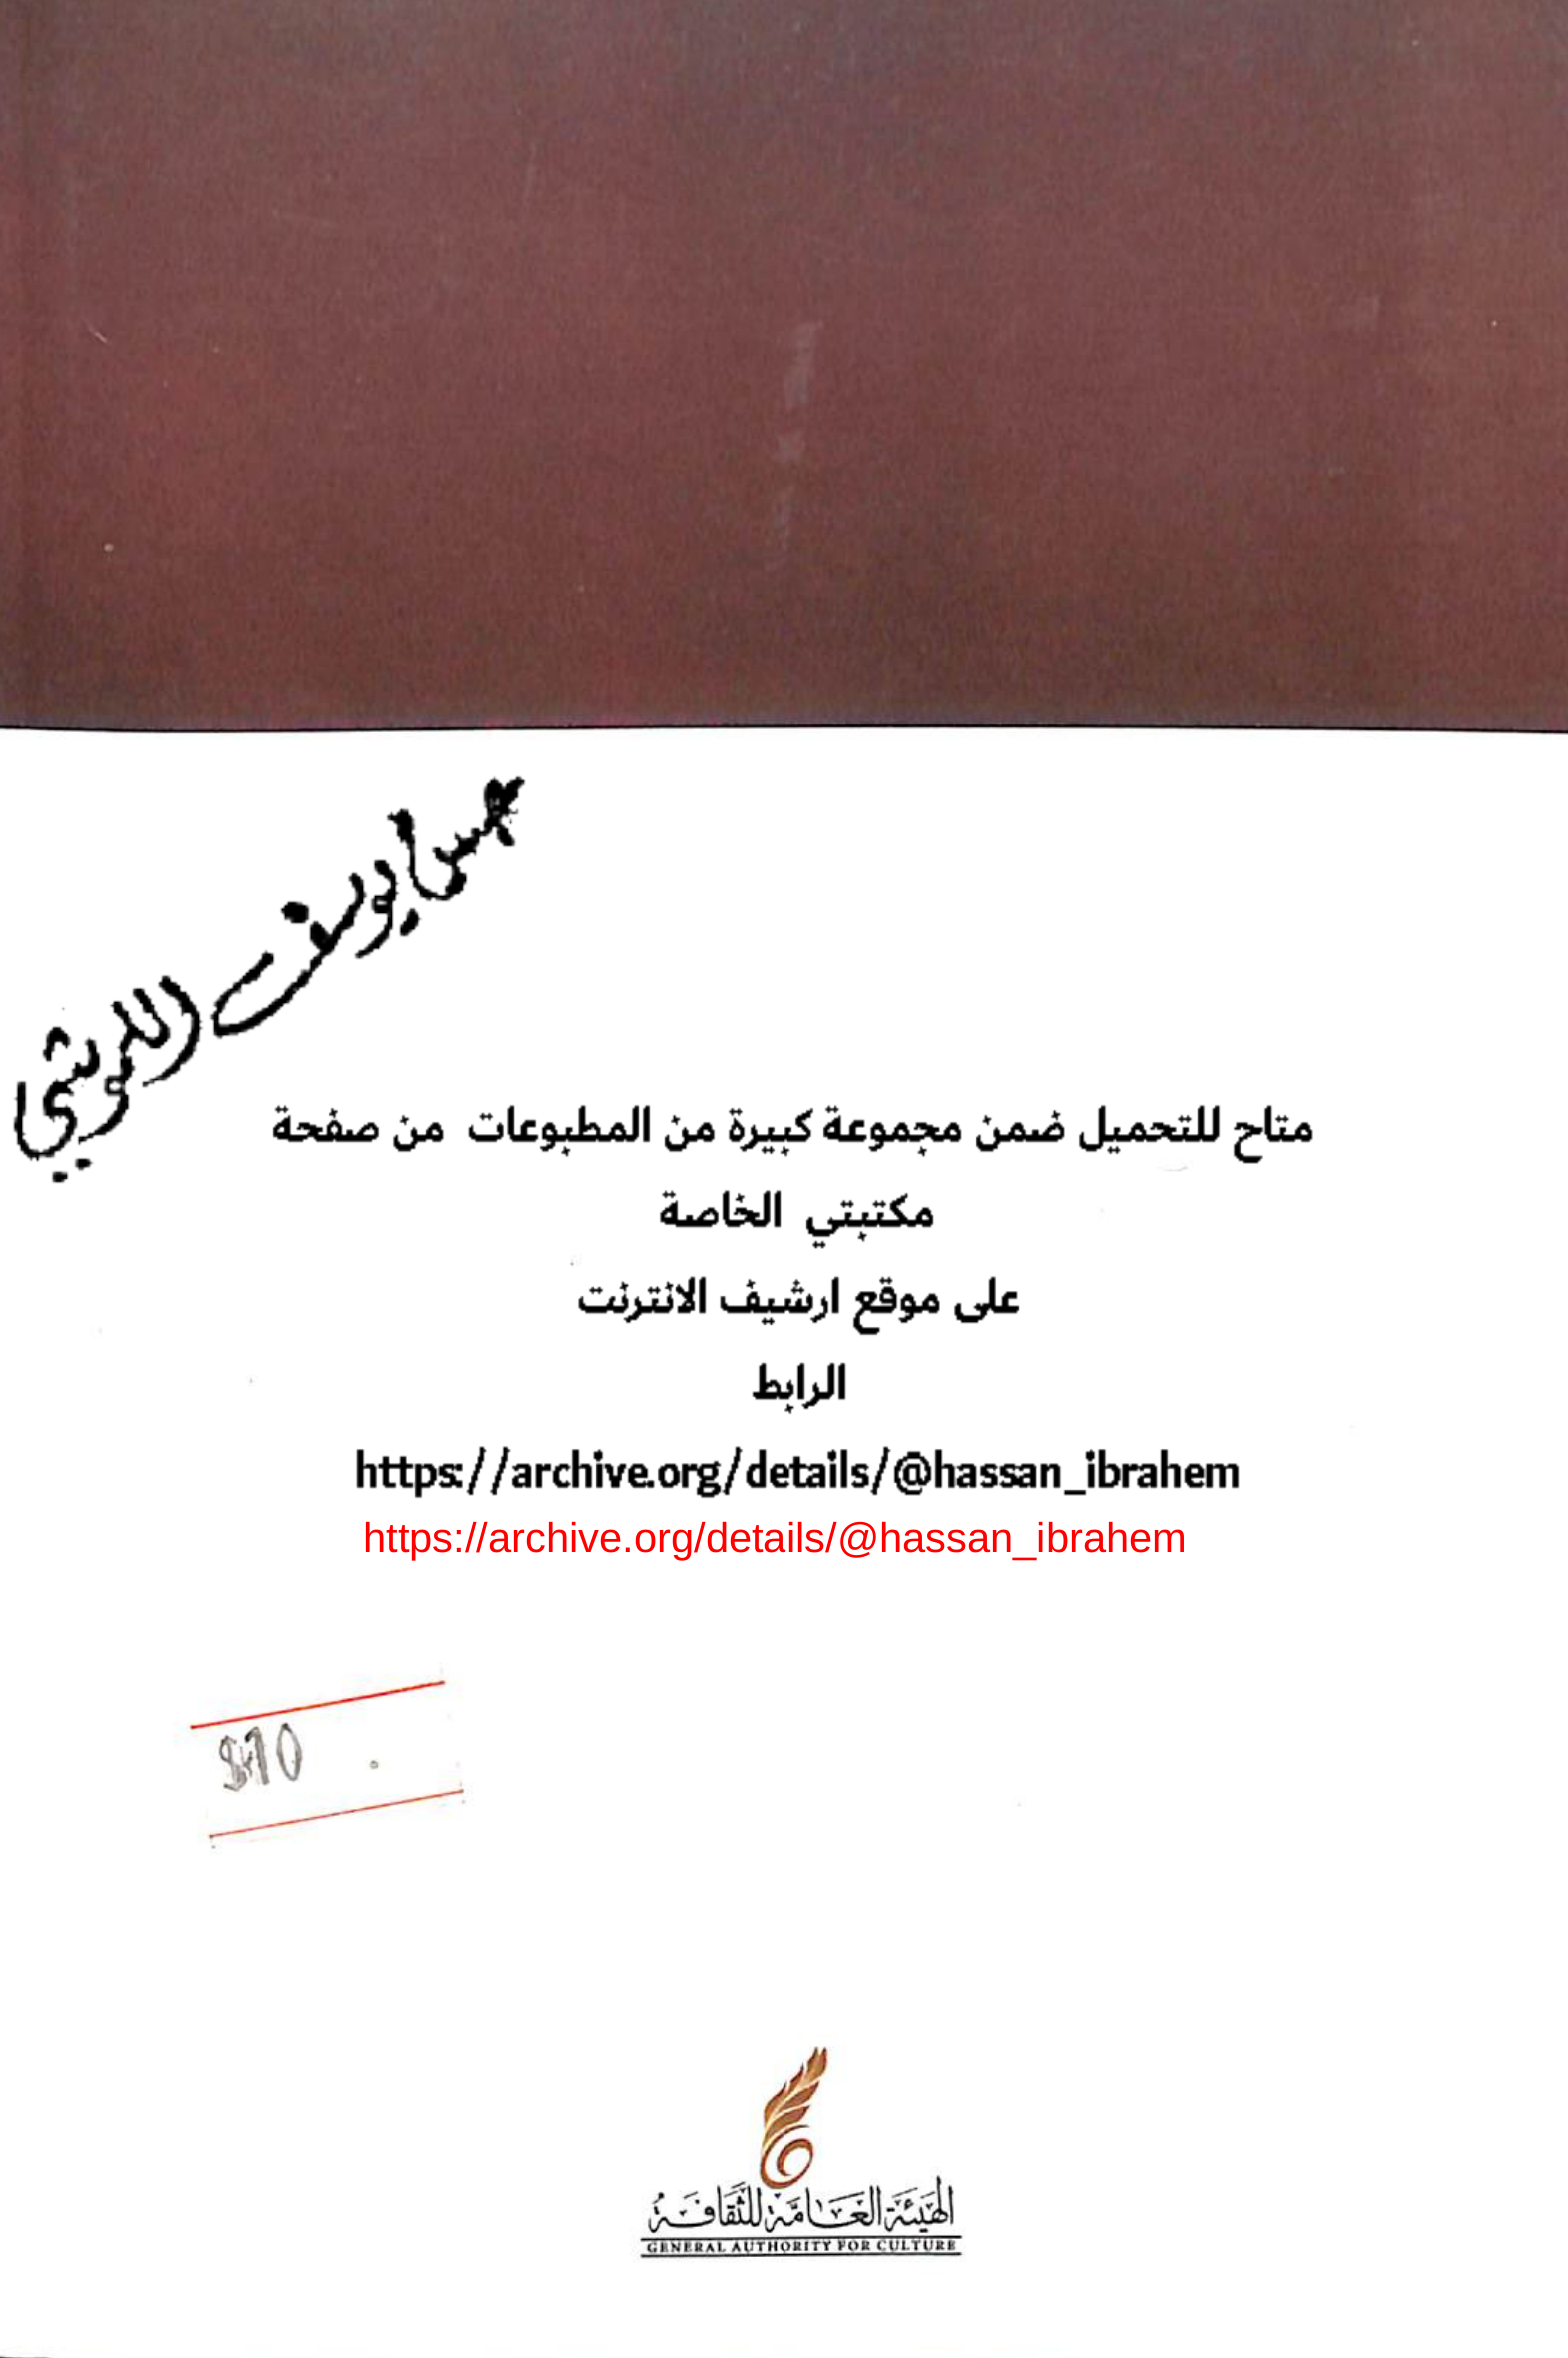 متاح للتحميل ضمن مجموعة كبيرة من المطبوعات من صفحة
مكتبتي الخاصة
على موقع ارشيف الانترنت
الرابط
https://archive.org/details/@hassan_ibrahem
https://archive.org/details/@hassan_ibrahem
الهَيئَة العَامَّة للثَّقَافَة
GENERAL AUTHORITY FOR CULTURE